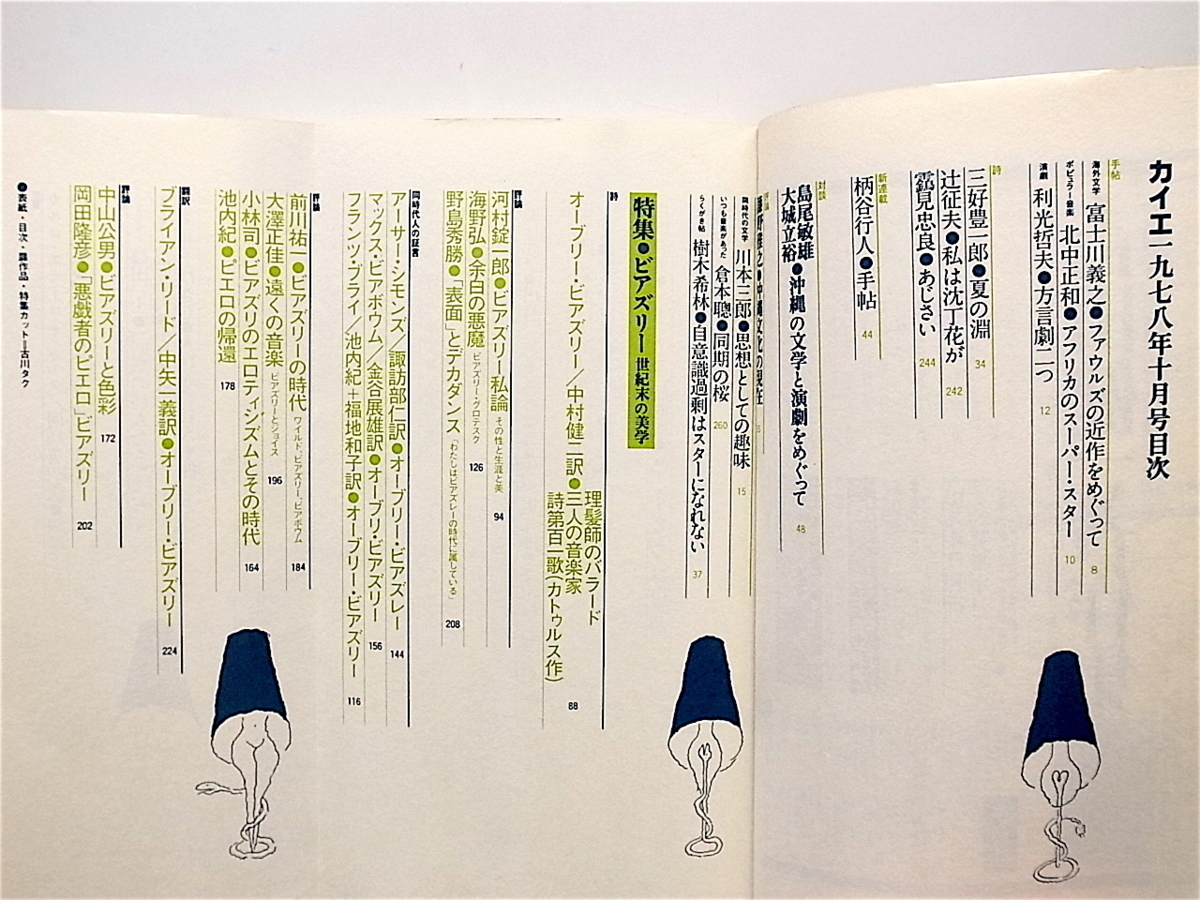 カイエ一九七八年十月号目次
手帖
海外文学 富士川義之●ファウルズの近作をめぐって 8
ポピュラー音楽 北中正和●アフリカのスーパー・スター 10
演劇 利光哲夫●方言劇二つ 12
詩
三好豊一郎●夏の淵 34
辻征夫●私は沈丁花が 242
靏見忠良●あじさい 244
新連載
柄谷行人●手帖 44
対談
島尾敏雄
大城立裕●沖縄の文学と演劇をめぐって 48
沖縄文化の現在
同時代の文学 川本三郎●思想としての趣味 15
いつも音楽があった 倉本聰●同期の桜 260
らくがき帖 樹木希林●自意識過剰はスターになれない 37
特集●ビアズリー 世紀末の美学
詩
オーブリー・ビアズリー／中村健二訳●理髪師のバラード
三人の音楽家
詩第百一歌(カトゥルス作) 88
評論
河村錠一郎●ビアズリー私論 その性と生涯と美 94
海野弘●余白の悪魔 ビアズリー・グロテスク 126
野島秀勝●「表面」とデカダンス 「わたしはビアズレーの時代に属している」 208
同時代人の証言
アーサー・シモンズ／諏訪部仁訳●オーブリー・ビアズレー 144
マックス・ビアボウム／金谷展雄訳●オーブリ・ビアズリー 156
フランツ・ブライ／池内紀＋福地和子訳●オーブリー・ビアズリー 116
評論
前川祐一●ビアズリーの時代 ワイルド、ビアズリー、ビアボウム 184
大澤正佳●遠くの音楽 ビアズリーとジョイス 196
小林司●ビアズリのエロティシズムとその時代 164
池内紀●ピエロの帰還 178
翻訳
ブライアン・リード／中矢一義訳●オーブリー・ビアズリー 224
評論
中山公男●ビアズリーと色彩 172
岡田隆彦●「悪戯者のピエロ」ビアズリー 202
●表紙・目次・扉作品・特集カット＝古川タク